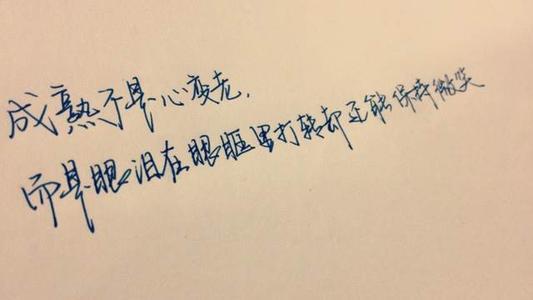 成熟不是心变老,
而是眼泪在眼眶里打转却还能保持微笑